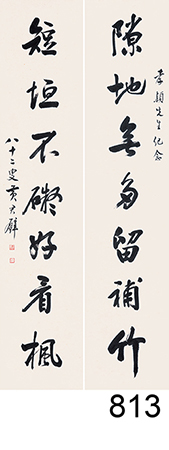 隙地無多留補竹
李顯先生紀念
短垣不礙好看楓
八十二叟黃君璧
813